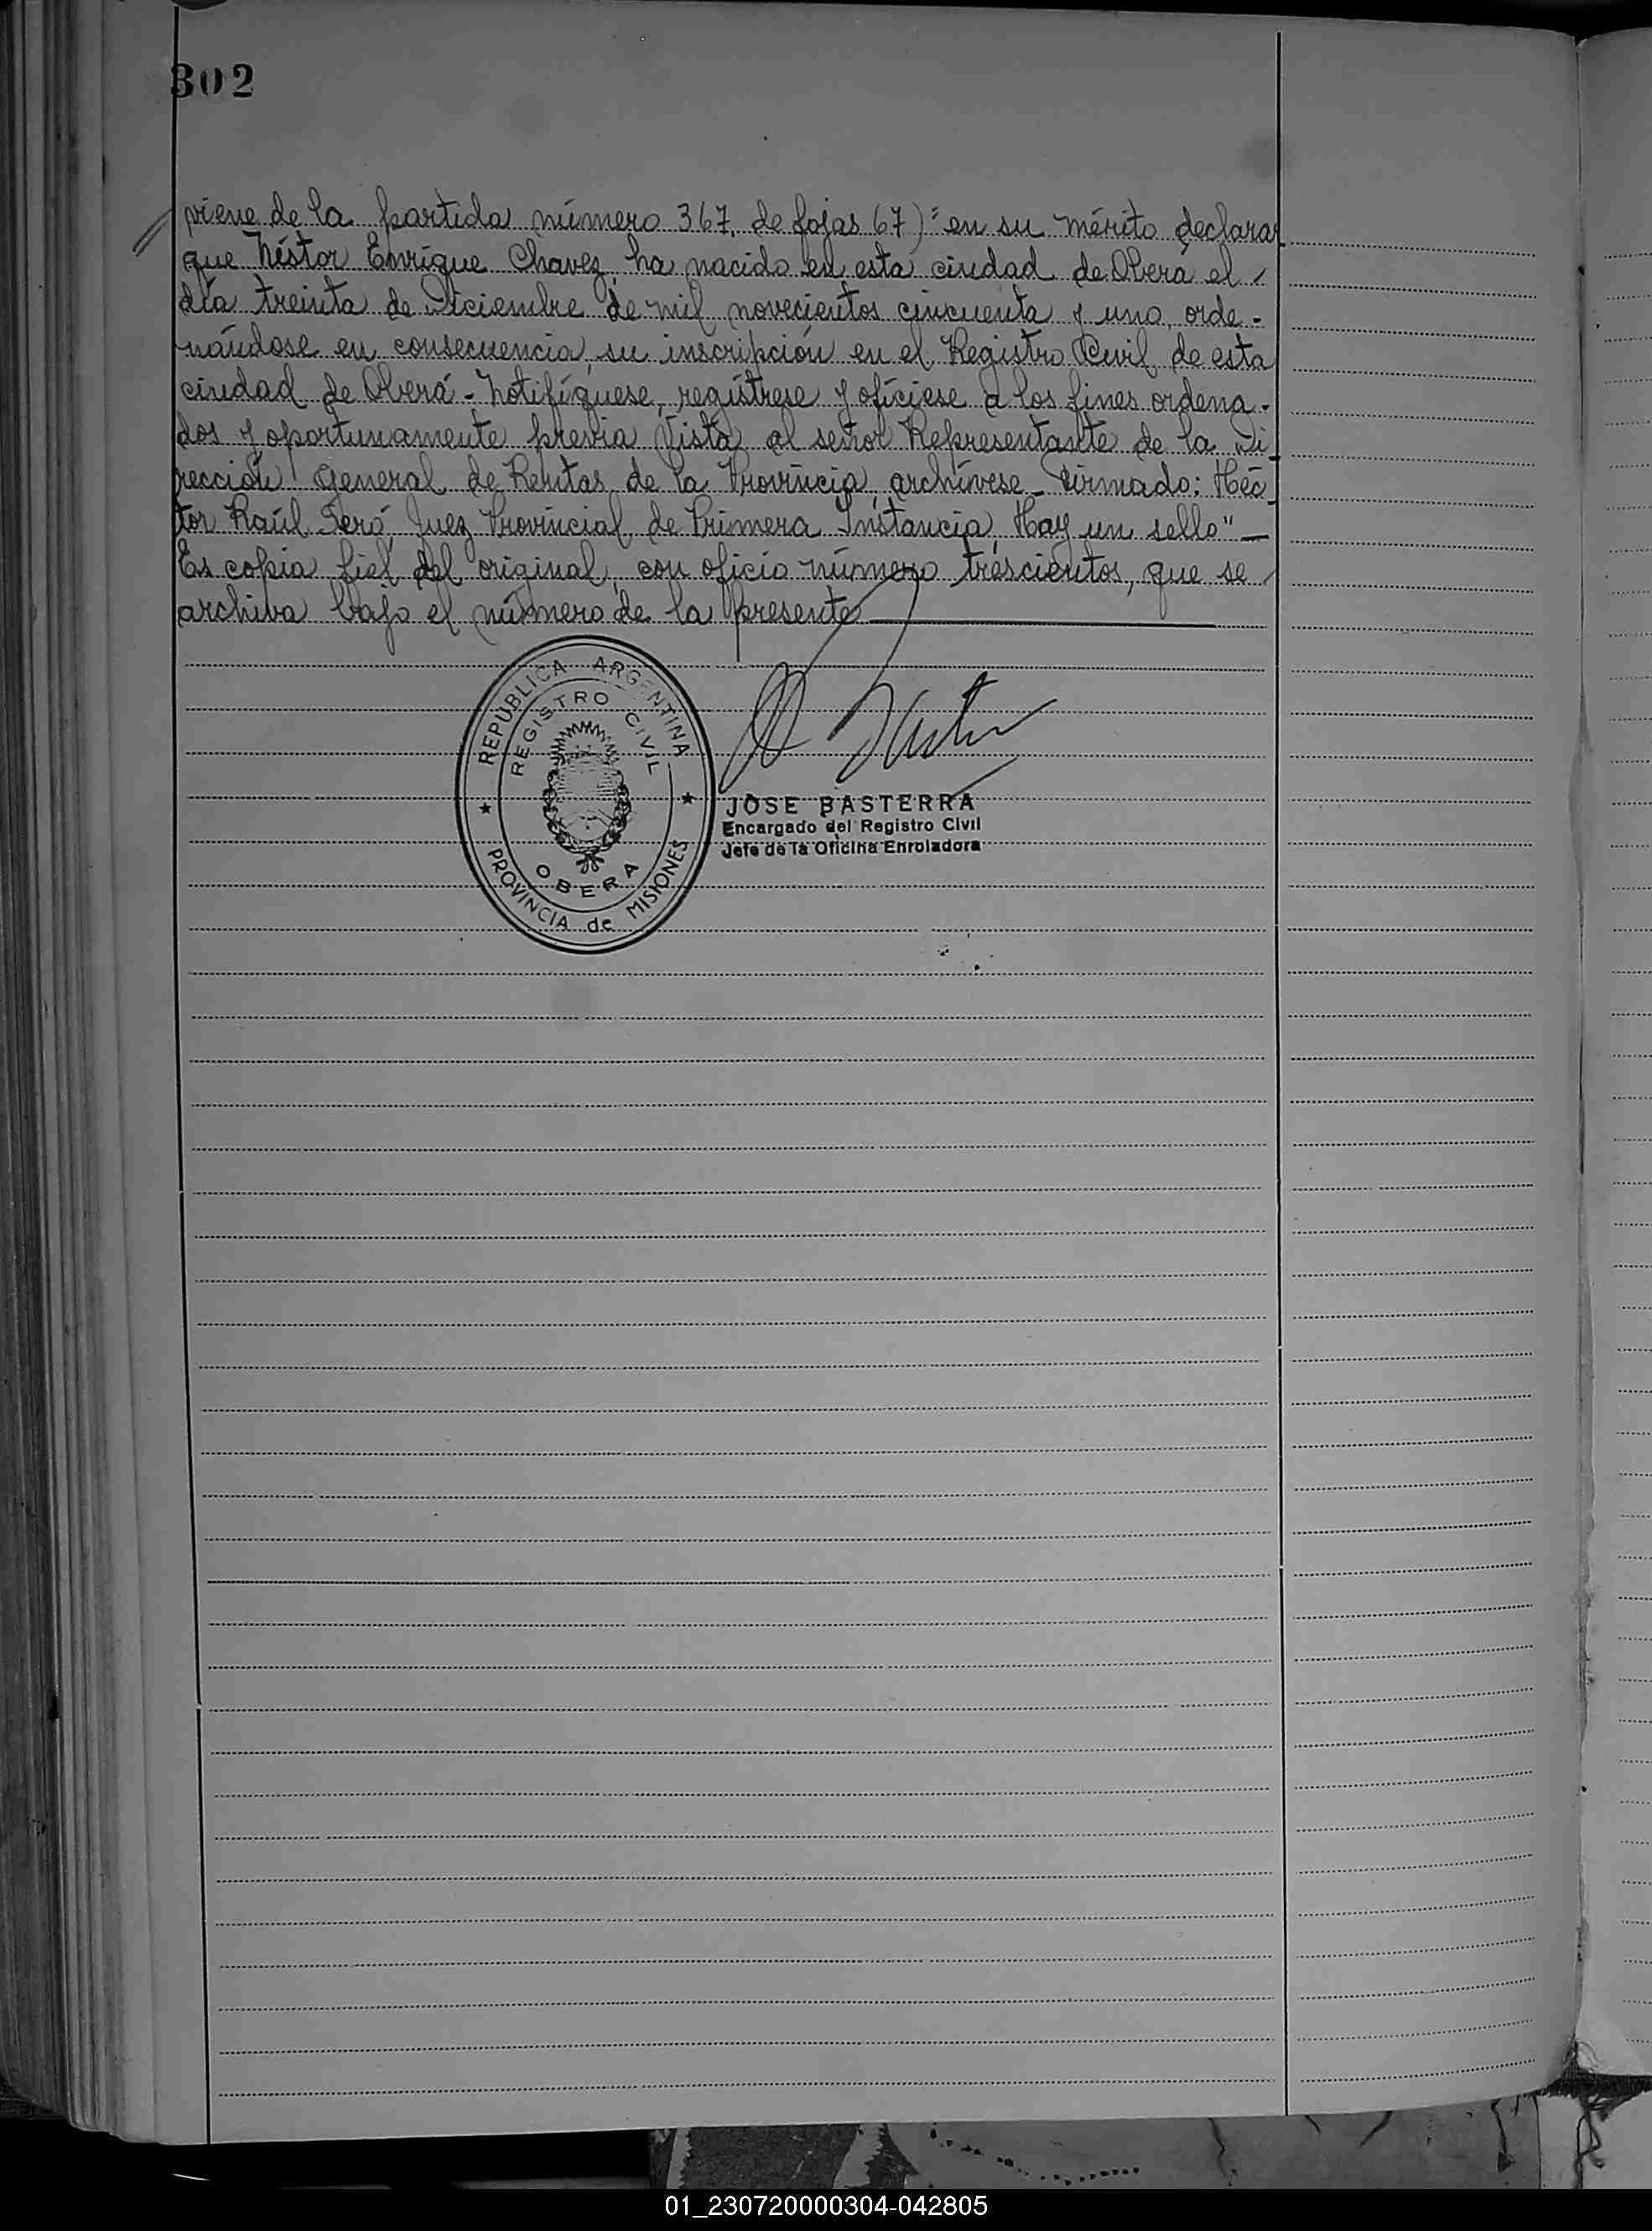 302
viene de la partida número 367, de fojas 67) "en su mérito declarar
que Néstor Enrique Chavez, ha nacido en esta ciudad de Oberá el
día treinta de Diciembre de mil novecientos cincuenta y uno, orde-
nándose en consecuencia, su inscripción en el Registro Civil de esta
ciudad de Oberá - Notifíquese, regístrese y ofíciese a los fines ordena-
dos y oportunamente previa vista al señor Representante de la Di-
rección General de Rentas de la Provincia, archívese - Firmado: Héc-
tor Raúl Seró, Juez Provincial de Primera Instancia, Hay un sello" -
Es copia fiel del original, con oficio número trescientos, que se
archiva bajo el número de la presente
REPUBLICA ARGENTINA
REGISTRO CIVIL
OBERA
PROVINCIA de MISIONES
JOSE BASTERRA
Encargado del Registro Civil
Jefe de la Oficina Enroladora
01_230720000304-042805